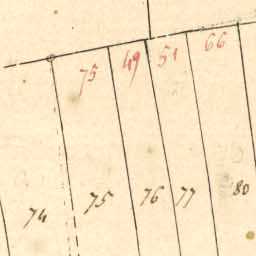 75 49 51 66
74 75 76 77 80